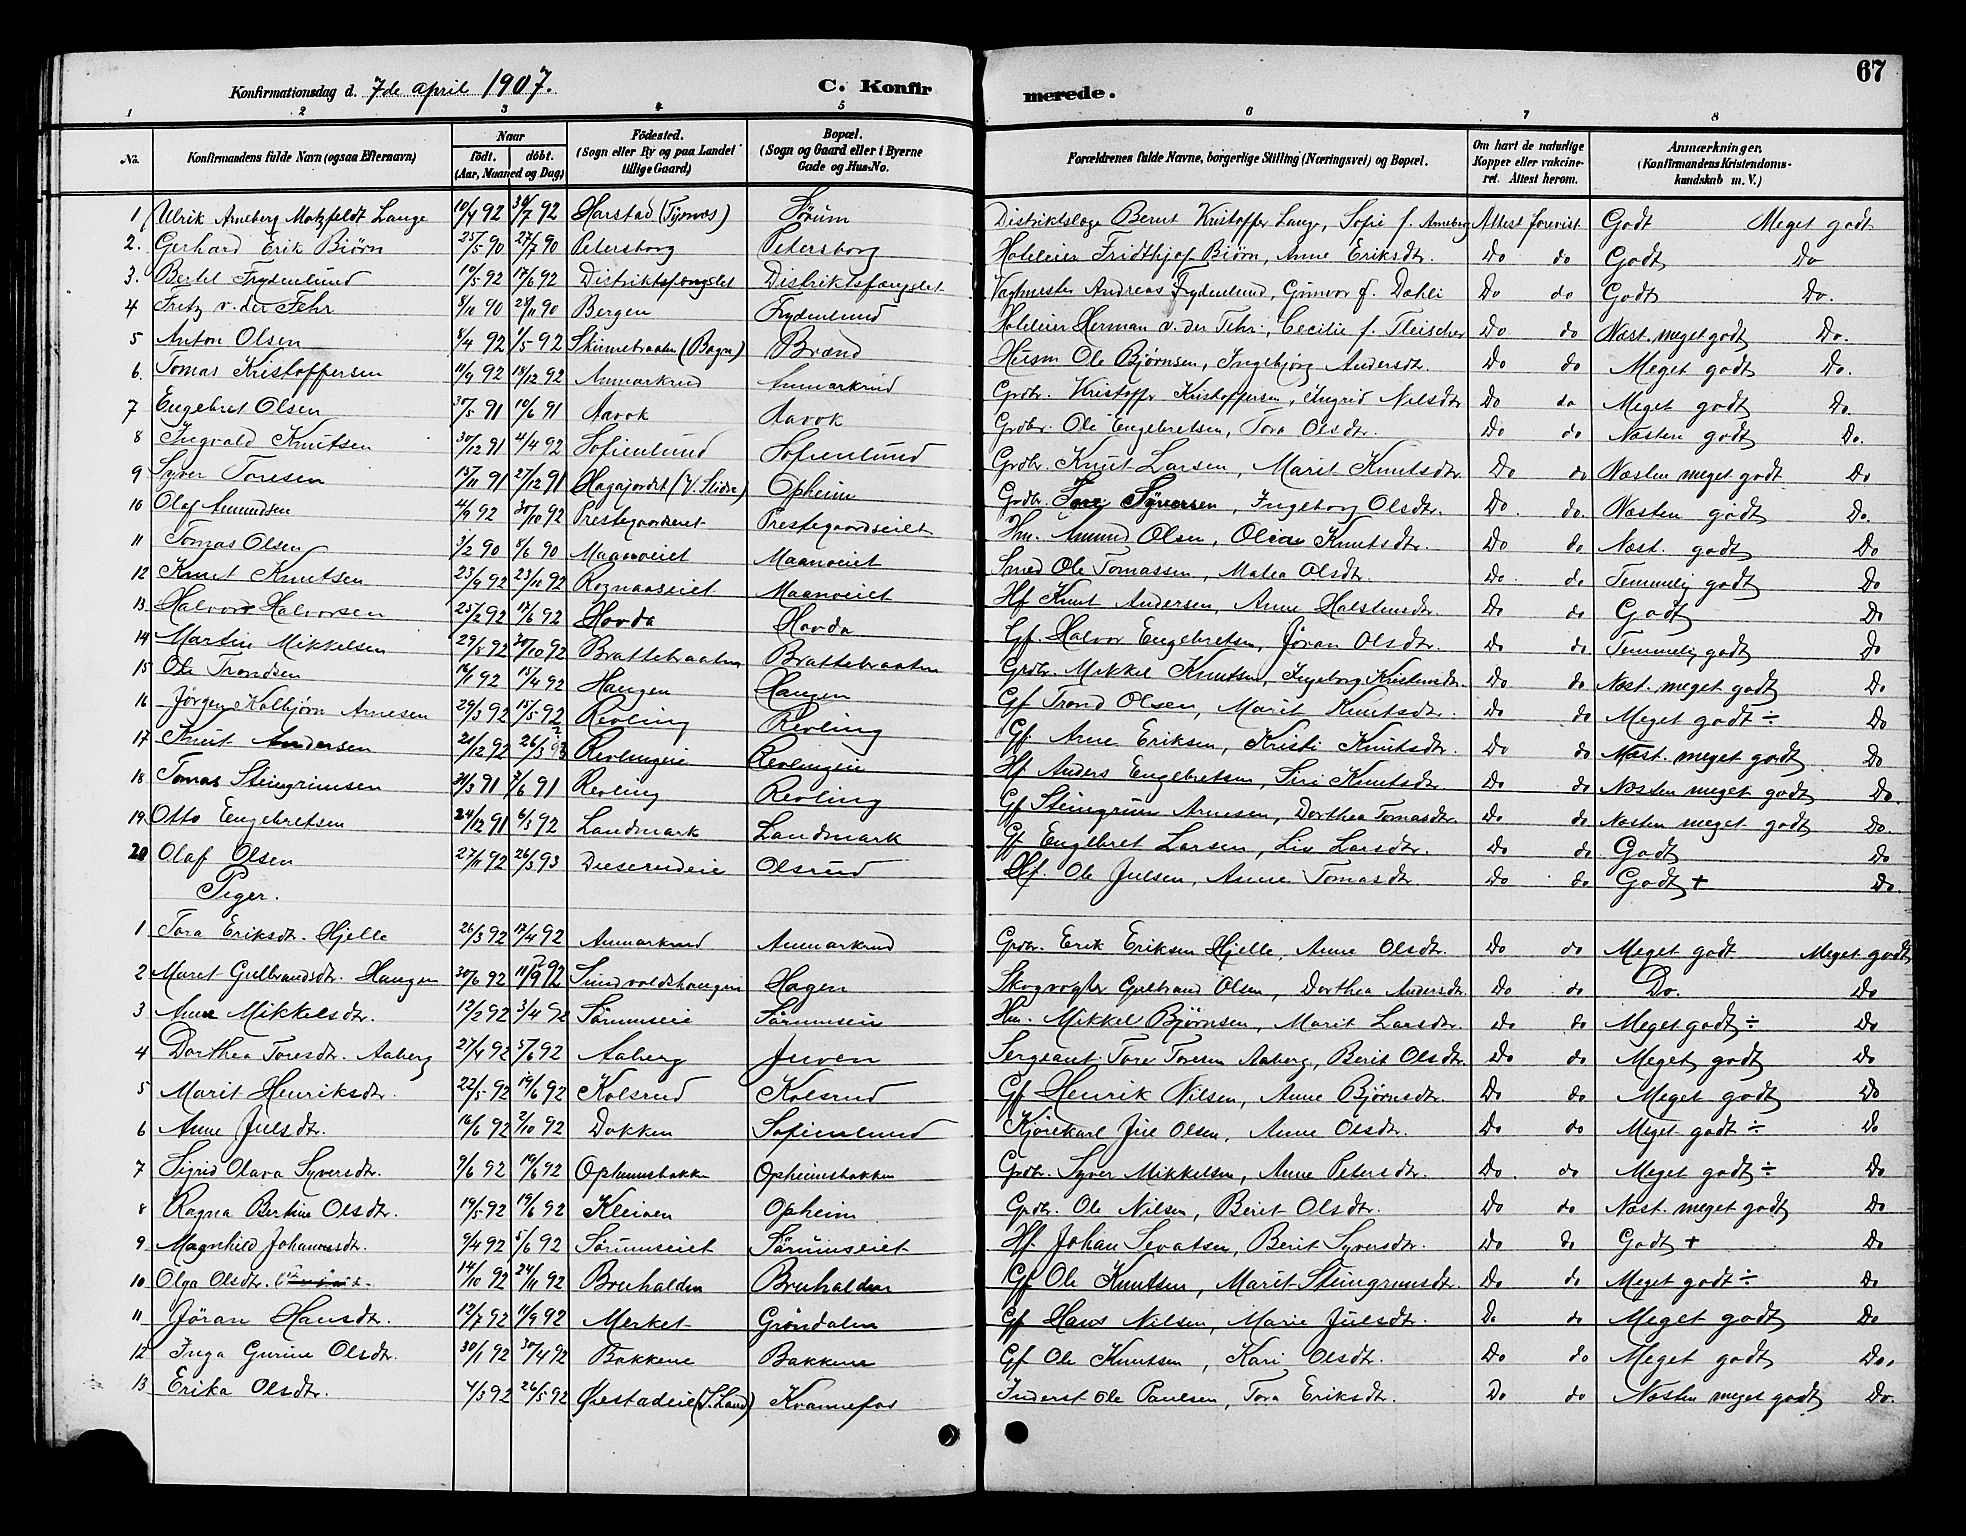 67
Konfirmationsdag d. 7de april 1907. C. Konfirmerede.
1 2 3 4 5 6 7 8
No. Konfirmandens fulde Navn (ogsaa Efternavn) Naar födt. döbt. (Aar, Maaned og Dag) Födested. (Sogn eller By og paa Landet tillige Gaard) Bopæl. (Sogn og Gaard eller i Byerne Gade og Hus-No.) Forældrenes fulde Navne, borgerlige Stilling (Næringsvei) og Bopæl. Om havt de naturlige Kopper eller vakcineret. Attest herom. Anmærkninger, (Konfirmandens Kristendomskundskab m. V.)
1 Ulrik Arneberg Motzfeldt Lange 10/4 92 30/7 92 Harstad Sørum Distriktslæge Bernt Kristoffer Lange, Sofie f. Arneberg Attest forevist Godt Meget godt
2. Gerhard Erik Biørn 25/5 90 27/7 90 Petersborg Petersborg Hoteleier Fridthjof Biørn, Anne Eriksdt. Do do Godt Do
3. Bertel Frydenlund 10/5 92 17/6 92 Distriktsfængslet Distriktsfængslet Vagtmester Andreas Frydenlund, Gunvor f. Dahli Do do Godt Do.
4 Fritz v. der Fehr 8/10 90 28/11 90 Bergen Frydenlund Hoteleier Herman v. der Fehr, Cecilie f. Fleischer Do do Næst. meget godt Do.
5 Anton Olsen 8/4 92 1/5 92 Skinnebraaten (Bagn) Brænd Husm Ole Bjørnsen, Ingebjørg Andersdt. Do do Meget godt Do.
6. Tomas Kristoffersen 11/9 92 18/12 92 Anmarkrud Anmarkrud Grdbr. Kristoffer Kristoffersen, Ingrid Nilsdtr Do do Meget godt Do.
7 Engebret Olsen 30/5 91 10/6 91 Aavok Aavok Grdbr. Ole Engebretsen, Tora Olsdtr. Do do Næsten godt Do.
8 Ingvald Knutsen 30/12 91 4/4 92 Sofienlund Sofienlund Grdbr. Knut Larsen, Marit Knutsdtr. Do do Næsten meget godt Do
9 Syver Toresen 15/11 91 27/12 91 Hagajordet (V. Slidre) Opheim Grdbr. Tore Syversen, Ingeborg Olsdtr. Do do. Næsten godt Do.
10 Olaf Amundsen 4/9 92 30/10 92 Prestegaardseiet Prestegaardseiet Hm. Amund Olsen, Olea Knutsdtr. Do do Næst. godt Do
11 Tomas Olsen 3/2 90 8/6 90 Maanoeiet Maanoeiet Smed Ole Tomassen, Matea Olsdt. Do do Temmelig godt Do
12 Knut Knutsen 23/9 92 23/11 92 Rognaaseiet Maanoeiet Hf Knut Andersen, Anne Halstensdtr. Do do Godt Do
13 Halvor Halvorsen 25/2 92 17/6 92 Hovda Hovda Gf. Halvor Engebretsen, Jøran Olsdtr. Do do Temmelig godt Do
14 Martin Mikkelsen 29/8 92 30/10 92 Brattebraaten Brattebraaten Grdbr. Mikkel Knutsen, Ingeborg Kristensdtr. Do do Næst. meget godt Do
15 Ole Trondsen 16/1 92 15/4 92 Haugen Haugen Gf Trond Olsen, Marit Knutsdtr. Do do Meget godt ÷ Do
16 Jørgen Kolbjørn Arnesen 29/3 92 15/5 92 Revling Revling Gf. Arne Eriksen, Kristi Knutsdtr. Do do Næst. meget godt Do
17 Knut Andersen 21/12 92 26/3 93 Revlingeie Revlingeie Hf Anders Engebretsen, Siri Knutsdtr. Do do Næsten meget godt Do.
18 Tomas Steingrimsen 31/3 91 7/6 91 Revling Revling Gf Steingrim Arnesen, Dorthea Tomasdtr. Do do Næsten meget godt Do.
19. Otto Engebretsen 24/12 91 6/3 92 Landmark Landmark Gf Engebret Larsen, Liv Larsdtr. Do do Godt Do
20 Olaf Olsen 27/11 92 26/3 93 Dieserudeie Olsrud Hf. Ole Julsen, Anne Tomasdtr. Do do Godt + Do.
Piger.
1 Tora Eriksdtr. Hjelle 26/3 92 17/4 92 Anmarkrud Anmarkrud Grdbr. Erik Eriksen Hjelle, Anne Olsdtr. Do do Meget godt Meget godt
2 Maret Gulbrandsdtr. Haugen 30/6 92 11/9 92 Sundvoldshaugen Hagen Skogvogter Gulbrand Olsen, Dorthea Andersdtr. Do do Do. Do
3 Anne Mikkelsdtr. 12/2 92 3/4 92 Sørumseie Sørumseie Hm. Mikkel Bjørnsen, Marit Larsdtr. Do do Meget godt ÷ Do
4 Dorthea Toresdtr. Aaberg 27/4 92 5/6 92 Aaberg Juven Sergeant Tore Toresen Aaberg, Berit Olsdtr. Do do Meget godt Do
5 Marit Henriksdtr. 22/5 92 19/6 92 Kolsrud Kolsrud Gf Henrik Nilsen, Anne Bjørnsdtr. Do do Meget godt Do
6 Anne Julsdtr. 16/6 92 2/10 92 Dokken Sofienlund Kjørekarl Jul Olsen, Anne Olsdtr. Do do Meget godt ÷ Do
7 Sigrid Olava Syversdtr. 9/6 92 19/6 92 Opheimsbakken Opheimsbakken Grdbr. Syver Mikkelsen, Anne Petersdtr. Do do Meget godt ÷ Do
8 Ragna Bertine Olsdtr. 19/5 92 19/6 92 Kleiven Opheim Grdbr. Ole Nilsen, Beret Olsdtr. Do do Næst. meget godt Do
9 Magnhild Johannesdtr. 9/4 92 5/6 92 Sørumseiet Sørumseiet Hf. Johan Sevatsen, Berit Syversdtr. Do do Godt + Do
10 Olga Olsdtr. 14/10 92 24/11 92 Bruhalden Bruhalden Gf Ole Knutsen, Marit Steingrimsdtr. Do do Meget godt ÷ Do
11 Jøran Hansdtr. 12/7 92 11/9 92 Merket Grøndalen Gf Hans Nilsen, Marie Julsdtr. Do do Meget godt Do
12 Inga Gurine Olsdtr. 30/1 92 30/4 92 Bakkene Bakkene Gf Ole Knutsen, Kari Olsdtr. Do do Meget godt Do.
13 Erika Olsdtr. 4/3 92 26/5 92 Øiestadeie (S. Land) Kvannefos Inderst Ole Paulsen, Tora Eriksdtr. Do do Næsten meget godt Do.